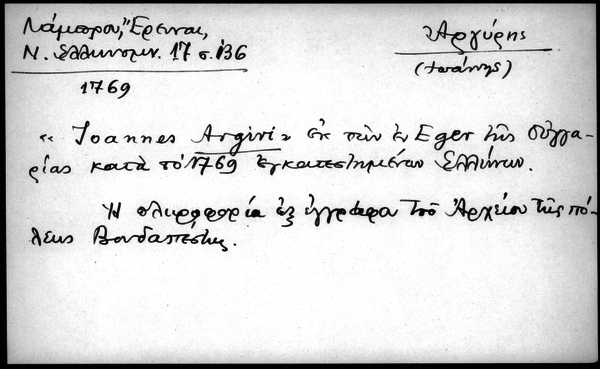 Λάμπρου, Ἔρευναι,
Ν. Ἑλληνομν. 17 σ. 136
1769
Ἀργύρης
(Ἰωάννης)
« Joannes Argiri » ἐκ τῶν ἐν Eger τῆς Οὑγγα-
ρίας κατὰ τὸ 1769 ἐγκατεστημένων Ἑλλήνων.
Ἡ πληροφορία ἐξ ἐγγράφου τοῦ Ἀρχείου τῆς πό-
λεως Βουδαπέστης.